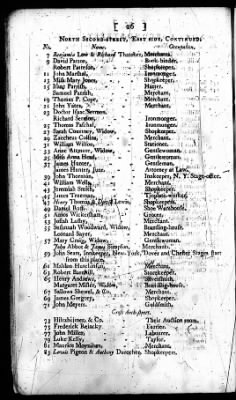 [ 26 ]
North Second-street, East side, Continued.
No. Name. Occupation.
7 Benjamin Low & Richard Thatcher, Merchant.
9 David Paton, Book-binder.
Robert Paterson, Shopkeeper.
11 John Marshal, Ironmonger.
13 Miss Mary Jones, Shopkeeper.
15 Isaac Parrish, Hatter.
Samuel Parrish, Merchant.
19 Thomas P. Cope, Merchant.
21 John Yates, Merchant.
23 Doctor Isaac Sermon,
Richard Sermon, Ironmonger.
25 Thomas Paschal, Ironmonger.
27 Sarah Courtney, Widow, Shopkeeper.
29 Zaccheus Collins, Merchant.
31 William Wilson, Stationer.
33 Anne Widow, Gentlewoman.
35 Miss Anna Head, Gentlewoman.
37 James Hunter, Gentleman.
James Hunter, jun. Attorney at Law.
39 John Innkeeper, N. Y. Stage-office.
41 William Wells, Merchant.
43 Jeremiah Smith, Shopkeeper.
45 John
47 Henry Thomas & David Lewis, Shopkeeper.
49 Daniel Ross, Shoe Warehouse.
51 Amos Wickersham, Grocer.
53 Josiah Lusby, Merchant.
55 Susannah Woodward, Widow, Boarding-house.
Leonard Sayer, Merchant.
57 Mary Craig, Widow, Gentlewoman.
John Abbot & James Simpson, Merchant.
59 John Sears, Innkeeper, New-York, Dover and Chester Stages start
from this place.
61 Mahlon Hutchinson, Merchant.
63 Robert Barnhill, Storekeeper.
65 Henry Andrews, Merchant.
Margaret Miller, Widow, Boarding-house.
67 Sallows Shewel, & Co. Merchant.
69 James Gregory, Shopkeeper.
71 John Meyers, Goldsmith.
Cross Arch-street.
73 Hiltzheimer, & Co. Their Auction room.
75 Frederick Reincky Currier.
77 John Miller, Labourer.
79 Luke Kelly, Taylor.
81 Maurice Moynihan, Merchant.
83 Lewis Pigeon & Anthony Shopkeeper.